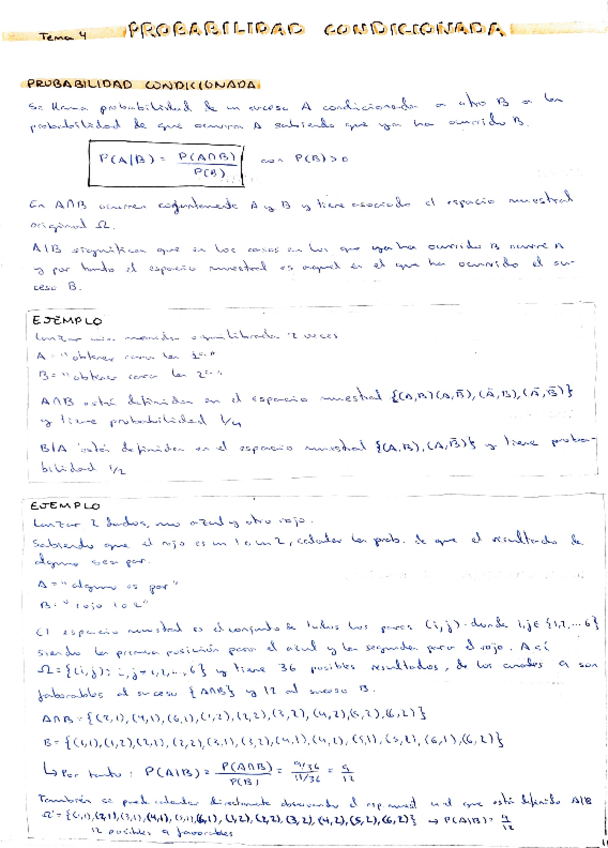 Tema 4 PROBABILIDAD CONDICIONADA
PROBABILIDAD CONDICIONADA
Se llama probabilidad de un suceso A condicionada a otro B a la
probabilidad de que ocurra A sabiendo que ya ha ocurrido B.
P(A|B) = P(A∩B) / P(B) con P(B)>0
En A∩B ocurren conjuntamente A y B y tiene asociado el espacio muestral
original Ω.
A|B significa que en los casos en los que ya ha ocurrido B ocurre A
y por tanto el espacio muestral es aquel en el que ha ocurrido el su-
ceso B.
EJEMPLO
Lanzar una moneda equilibrada 2 veces
A = "obtener cara la 1ª"
B = "obtener cara la 2ª"
A∩B está definida en el espacio muestral {(A,B)(A,B̄),(Ā,B),(Ā,B̄)}
y tiene probabilidad 1/4
B/A está definida en el espacio muestral {(A,B),(A,B̄)} y tiene proba-
bilidad 1/2
EJEMPLO
Lanzar 2 dados, uno azul y otro rojo.
Sabiendo que el rojo es un 1 o un 2, calcular la prob. de que el resultado de
alguno sea par.
A = "alguno es par"
B = "rojo 1 o 2"
El espacio muestral es el conjunto de todos los pares (i,j) donde i,j∈{1,2,...6}
siendo la primera posición para el azul y la segunda para el rojo. Así
Ω={(i,j): i,j=1,2,..,6} y tiene 36 posibles resultados, de los cuales 9 son
favorables al suceso {A∩B} y 12 al suceso B.
A∩B={(2,1),(4,1),(6,1),(1,2),(2,2),(3,2),(4,2),(5,2),(6,2)}
B={(1,1),(1,2),(2,1),(2,2),(3,1),(3,2),(4,1),(4,2),(5,1),(5,2),(6,1),(6,2)}
↳ Por tanto: P(A|B) = P(A∩B) / P(B) = 9/36 / 11/36 = 9/12
También se puede calcular directamente observando el esp. muest. en el que está definido A|B
Ω'={(1,1),(2,1),(3,1),(4,1),(5,1),(6,1),(1,2),(2,2),(3,2),(4,2),(5,2),(6,2)} → P(A|B)= 9/12
12 posibles 9 favorables